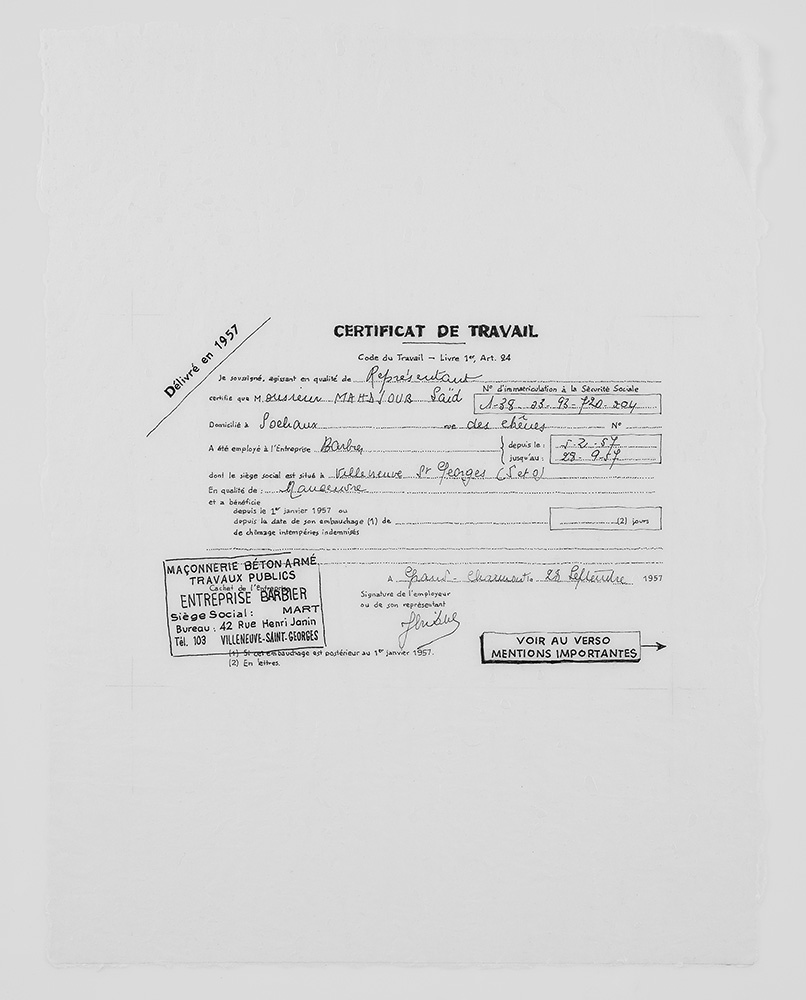 Délivré en 1957
CERTIFICAT DE TRAVAIL
Code du Travail – Livre 1er, Art. 24
Je soussigné, agissant en qualité de Représentant
N° d'immatriculation à la Sécurité Sociale
certifie que M. onsieur MAHDJOUB Saïd 1-38 93-93-720-204
Domicilié à Sochaux rue des chênes N°
A été employé à l'Entreprise Barbier
depuis le : 5-2-57
jusqu'au : 28-9-57
dont le siège social est situé à Villeneuve St Georges (S et O)
En qualité de : Manoeuvre
et a bénéficie
depuis le 1er janvier 1957 ou
depuis la date de son embauchage (1) de (2) jours
de chômage intempéries indemnisés
A Grand-Charmont le 28 Septembre 1957
Signature de l'employeur
ou de son représentant
MAÇONNERIE BÉTON ARMÉ
TRAVAUX PUBLICS
Cachet de l'Entreprise
ENTREPRISE BARBIER
Siège Social : MART
Bureau : 42 Rue Henri Janin
Tél. 103 VILLENEUVE-SAINT-GEORGES
(1) Si cet embauchage est postérieur au 1er janvier 1957.
(2) En lettres.
VOIR AU VERSO
MENTIONS IMPORTANTES